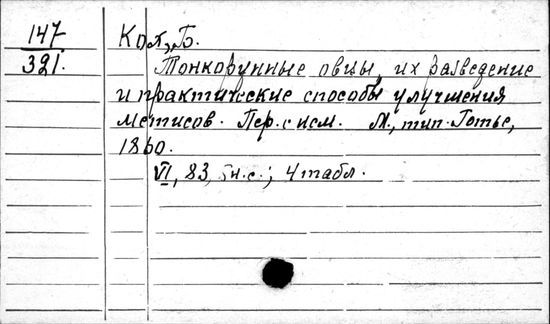 147
321.
Кол, Б.
Тонкорунные овцы, их разведение
и практические способы улучшения
метисов. Пер. с исп. М., тип. Готье,
1860.
VI, 83, н.с.; 4 табл.